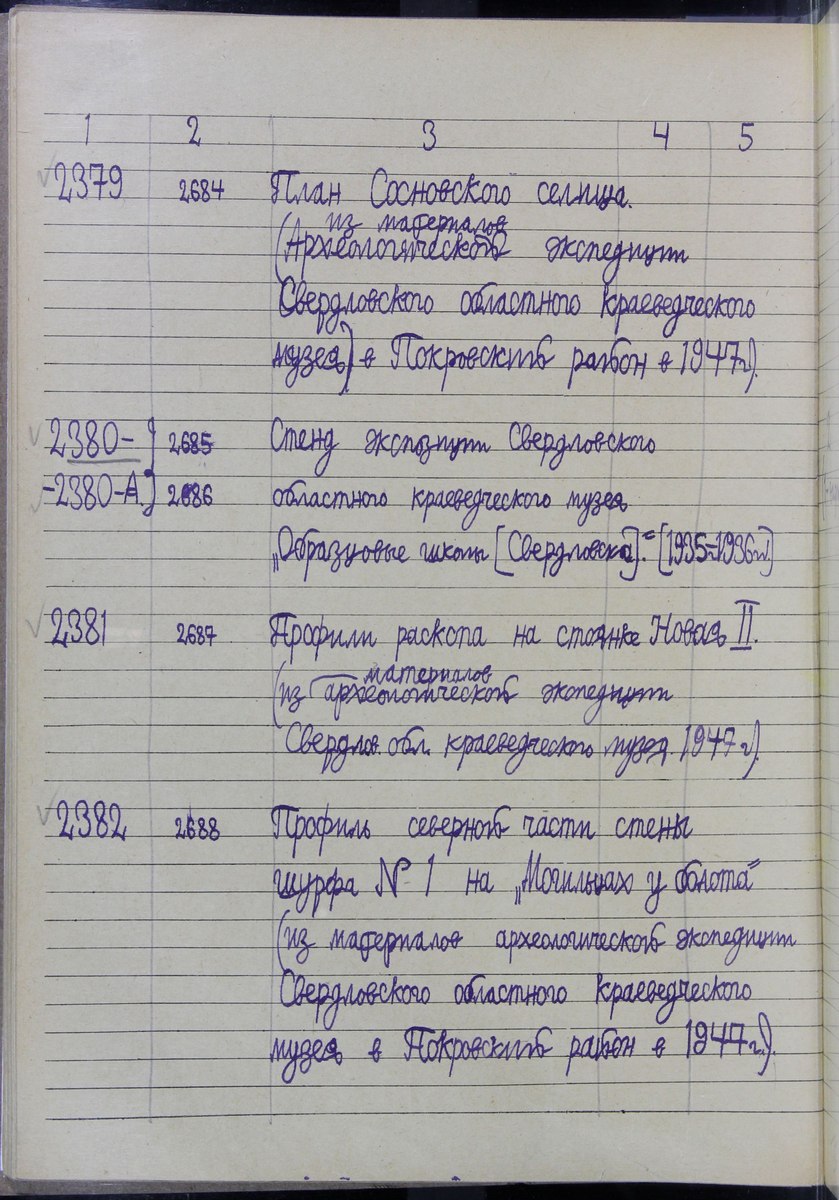 1 2 3 4 5
2379 2684 План Сосновского селища.
из материалов
(Археологической экспедиции
Свердловского областного краеведческого
музея) в Покровский район в 1947 г).
2380- 2685 Стенд экспозиции Свердловского
-2380-А. 2686 областного краеведческого музея
„Образцовые школы [Свердловска]." [1935-1936 гг.]
2381 2687 Профили раскопа на стоянке Новая II.
материалов
(из археологической экспедиции
Свердлов. обл. краеведческого музея. 1947 г).
2382 2688 Профиль северной части стены
шурфа № 1 на „Могильцах у болота"
(из материалов археологической экспедиции
Свердловского областного краеведческого
музея в Покровский район в 1947 г.).